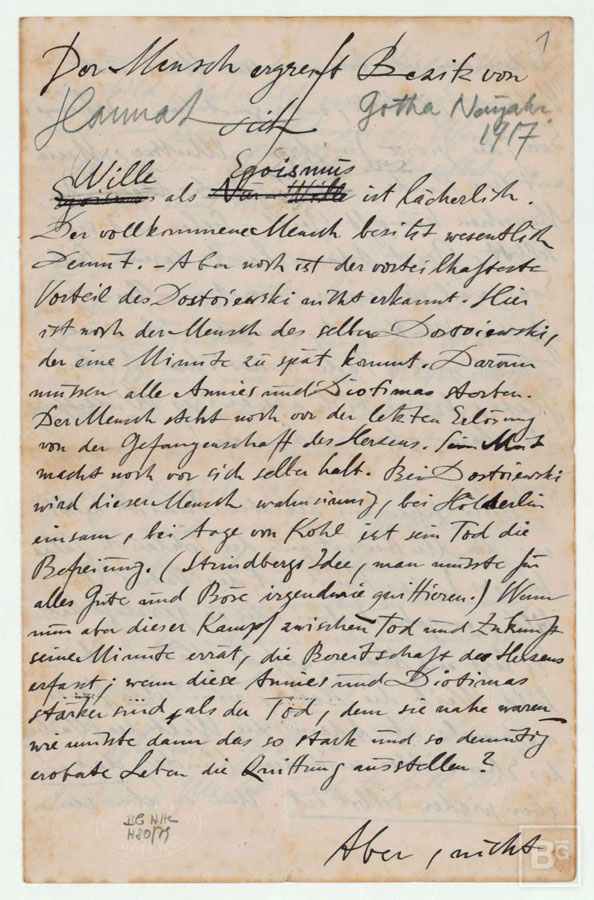 1
Der Mensch ergreift Besitz von
Hannah sich Gotha Neujahr
1917
Wille Egoismus
Egoismus als Nur Wille ist lächerlich.
Der vollkommene Mensch besitzt wesentlich
Demut. – Aber noch ist der vorteilhafteste
Vorteil des Dostoiewski nicht erkannt. Hier
ist noch der Mensch des selben Dostoiewski,
der eine Minute zu spät kommt. Darum
müssen alle Annies und Diotimas sterben.
Der Mensch steht noch vor der letzten Erlösung
von der Gefangenschaft des Herzens. Sein Mut
macht noch vor sich selber halt. Bei Dostoiewski
wird dieser Mensch wahnsinnig, bei Hölderlin
einsam, bei Aage von Kohl ist sein Tod die
Befreiung. (Strindbergs Idee, man müsste für
alles Gute und Böse irgendwie quittieren.) Wenn
nun aber dieser Kampf zwischen Tod und Zukunft
seine Minute errät, die Bereitschaft des Herzens
erfasst; wenn diese Annies und Diotimas
stärker sind, als der Tod, dem sie nahe waren –
wie müsste dann das so stark und so demütig
eroberte Leben die Quittung ausstellen?
BG
Aber, nicht
BG